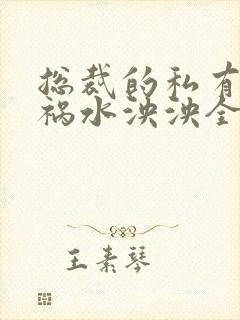 总裁的私有
祸水泱泱全
王素琴